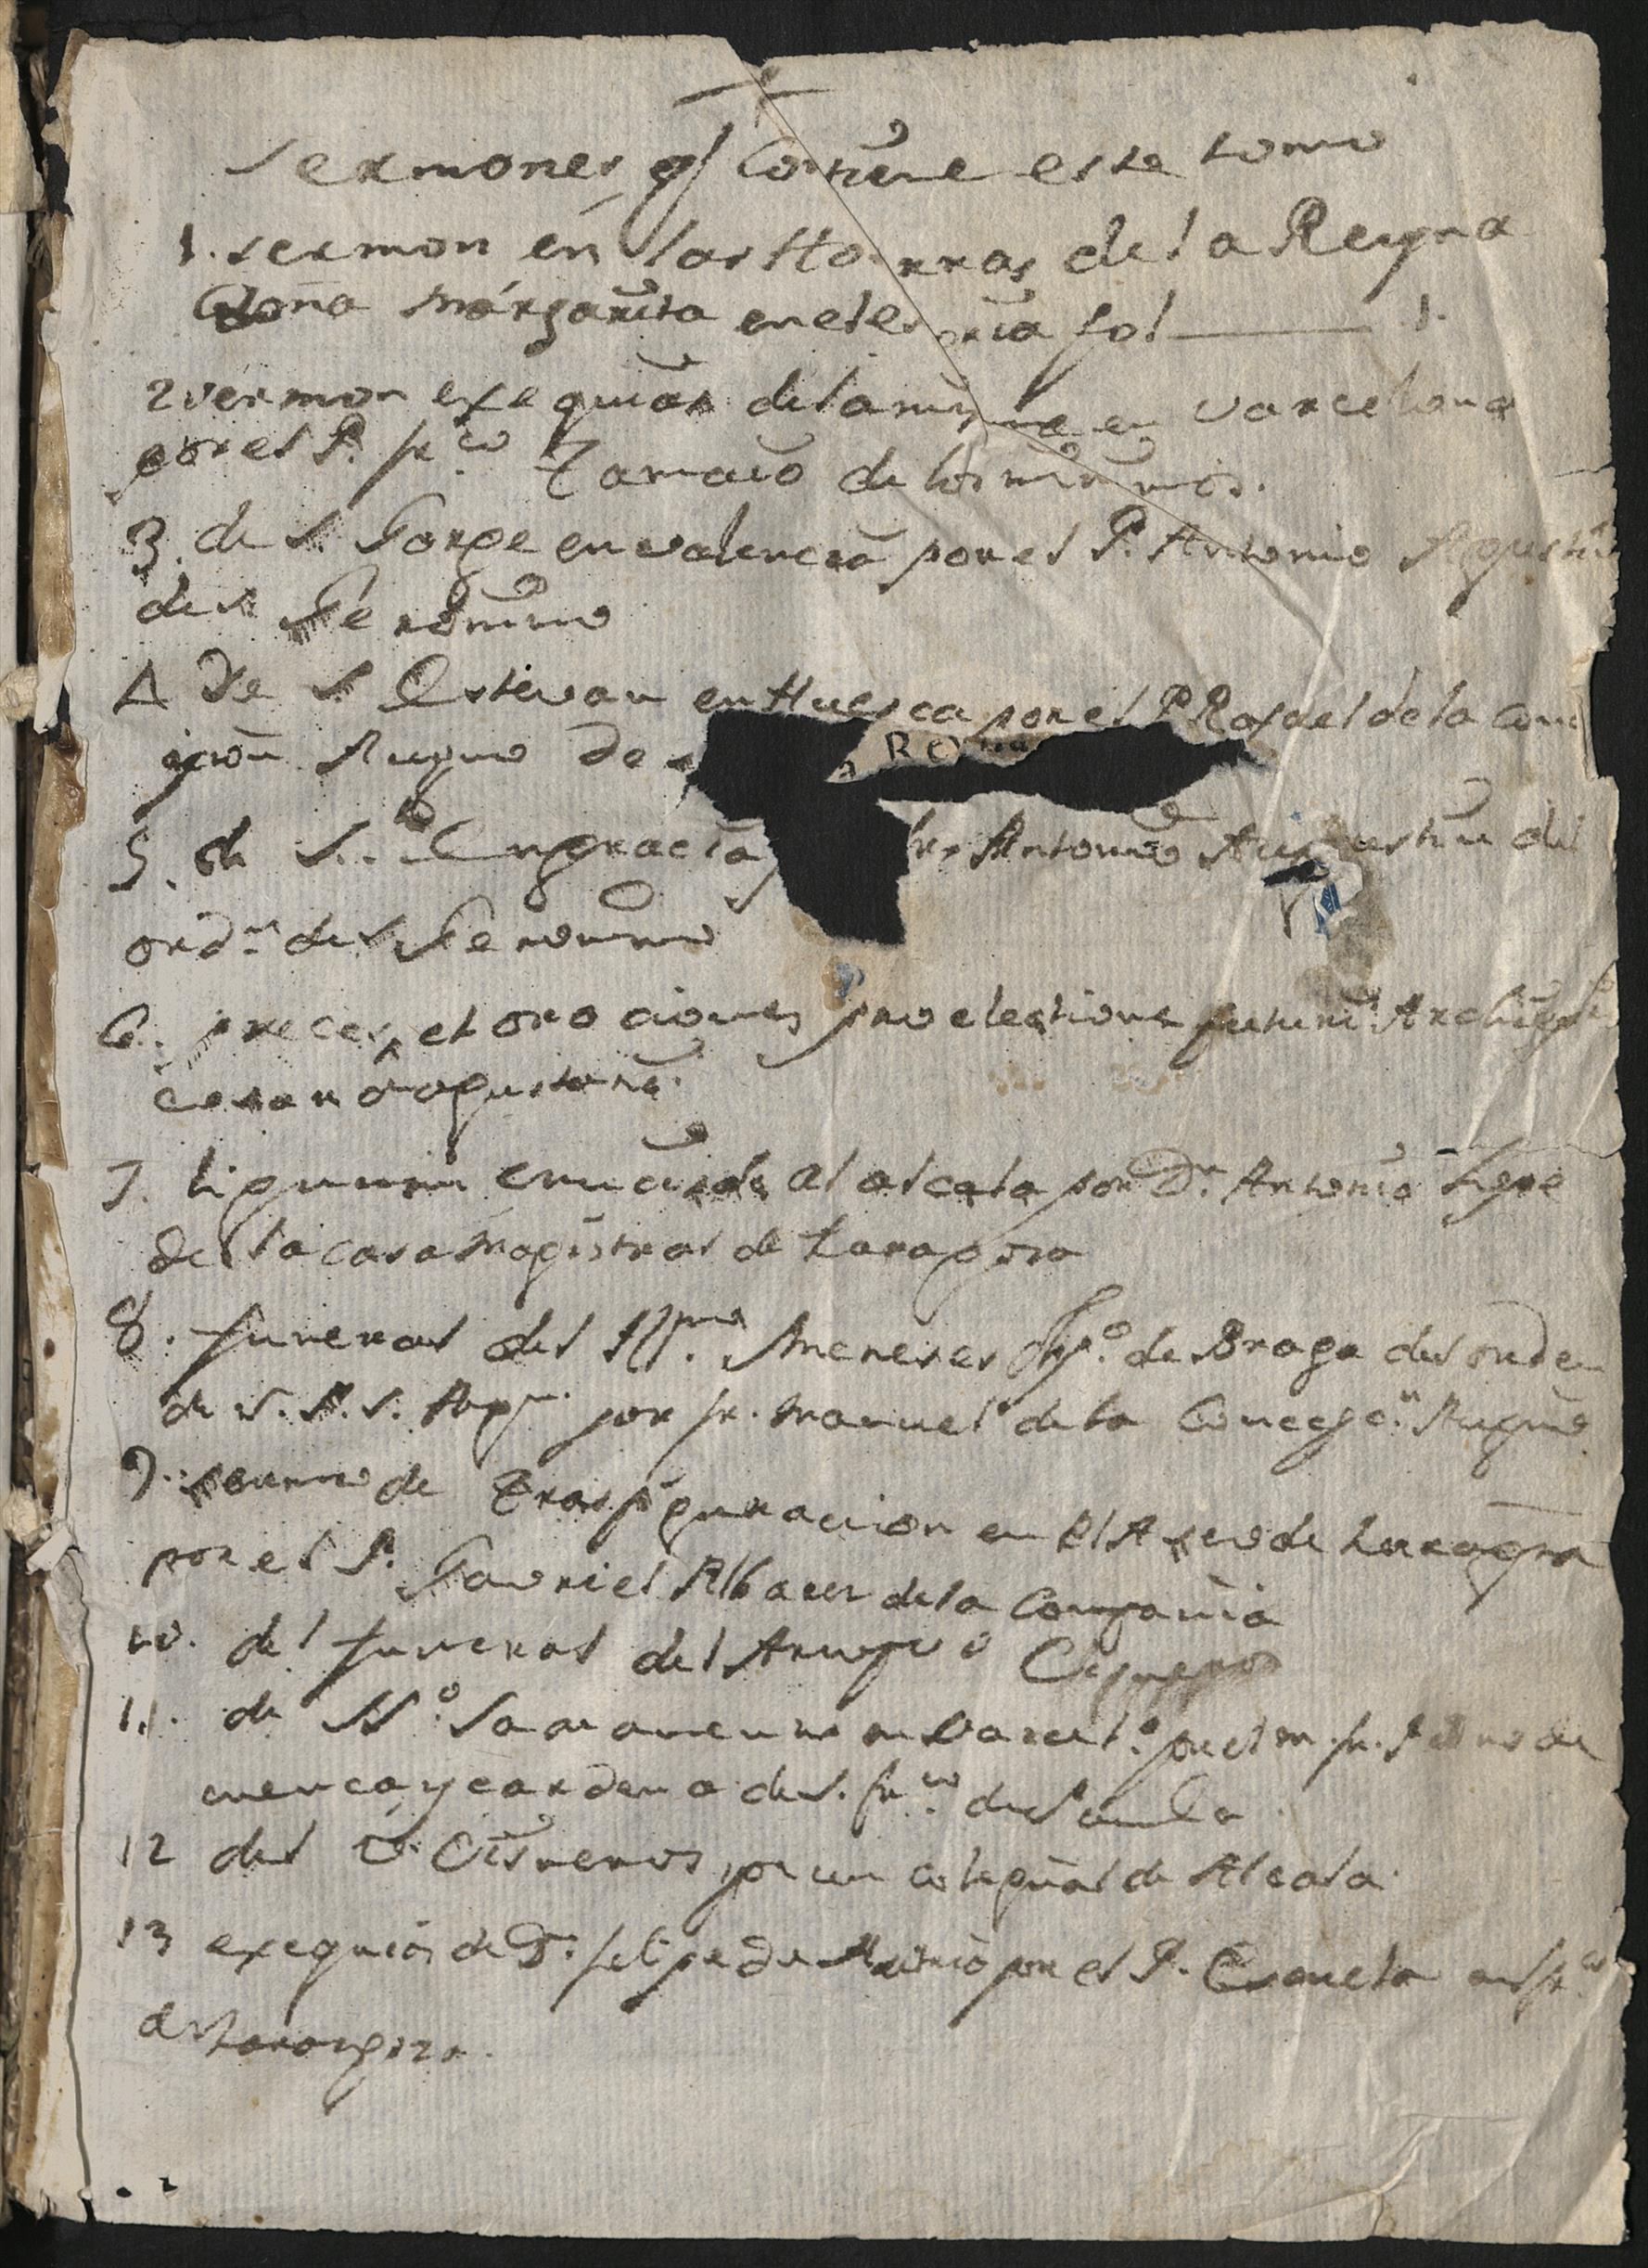 Sermones q Contiene este tomo
1. sermon en las Honrras de la Reyna
Doña Margarita en el escoria fol 1.
2 sermon exequias de la misma en varcelona
por el P. fr.co Tamaio de los minimos.
3. de S. Jorge en valencia por el P. Antonio Agustin
de S. Geronimo
4 De S. Estevan en Huesca por el P. Rafael de la conc
pcion Augno de
RO
5. de S.ta Engracia fr. Antonio Augustin del
ord.n de S. Geronimo
6. preces, et oraciones pro electione futuri Archiep
cesaraogustani.
7. al alcala por D.n Antonio
de la casa Magistral de Zaragoza
8. funeral del Ill.mo Meneses de Braga del orden
de S. por fr. Manuel de la Concepc.n Augno
9. sermo de Trasfiguracion en el Aseo de Zaragoza
por el P. Gavriel Albacer de la Compania
10. del funeral del Cisneros
11. de SS.o Sacramento en Varcel.a por el m. fr. Pedro de
cuenca y cardena de S. fr.co de Paula
12 del V. Cisneros por un colegial de Alcala.
13 exequias de D. felipe de Austria por el P. en S. fr.co
de Zaragoza.